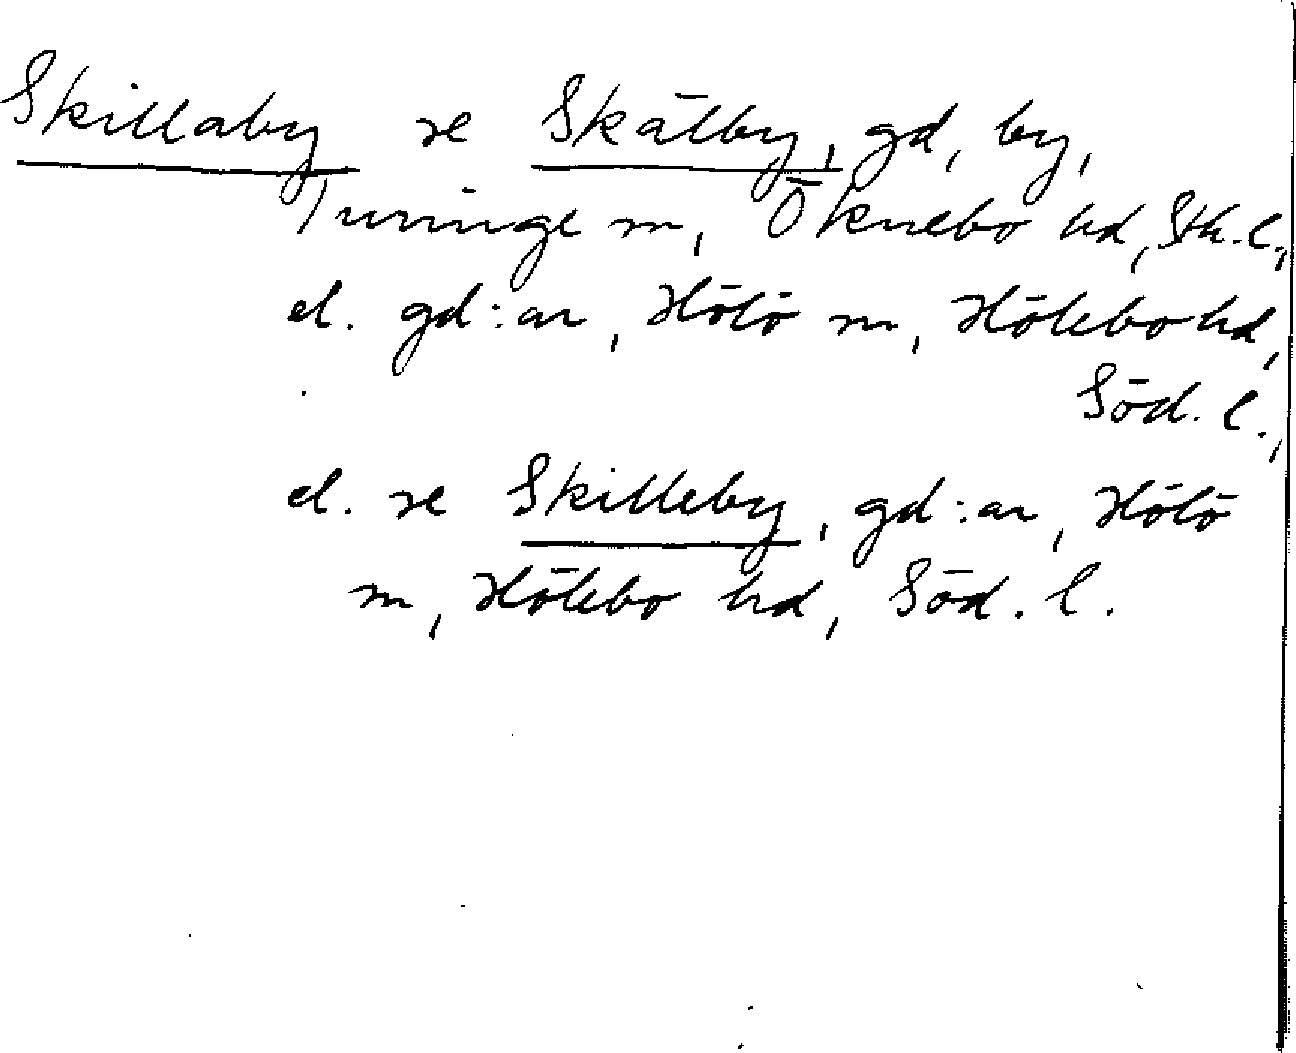 Skillaby se Skälby, gd, by,
Turinge sn, Öknebo hd, Sth. l.,
el. gd:ar, Hölö sn, Hölebo hd,
Söd. l.,
el. se Skilleby, gd:ar, Hölö
sn, Hölebo hd, Söd. l.